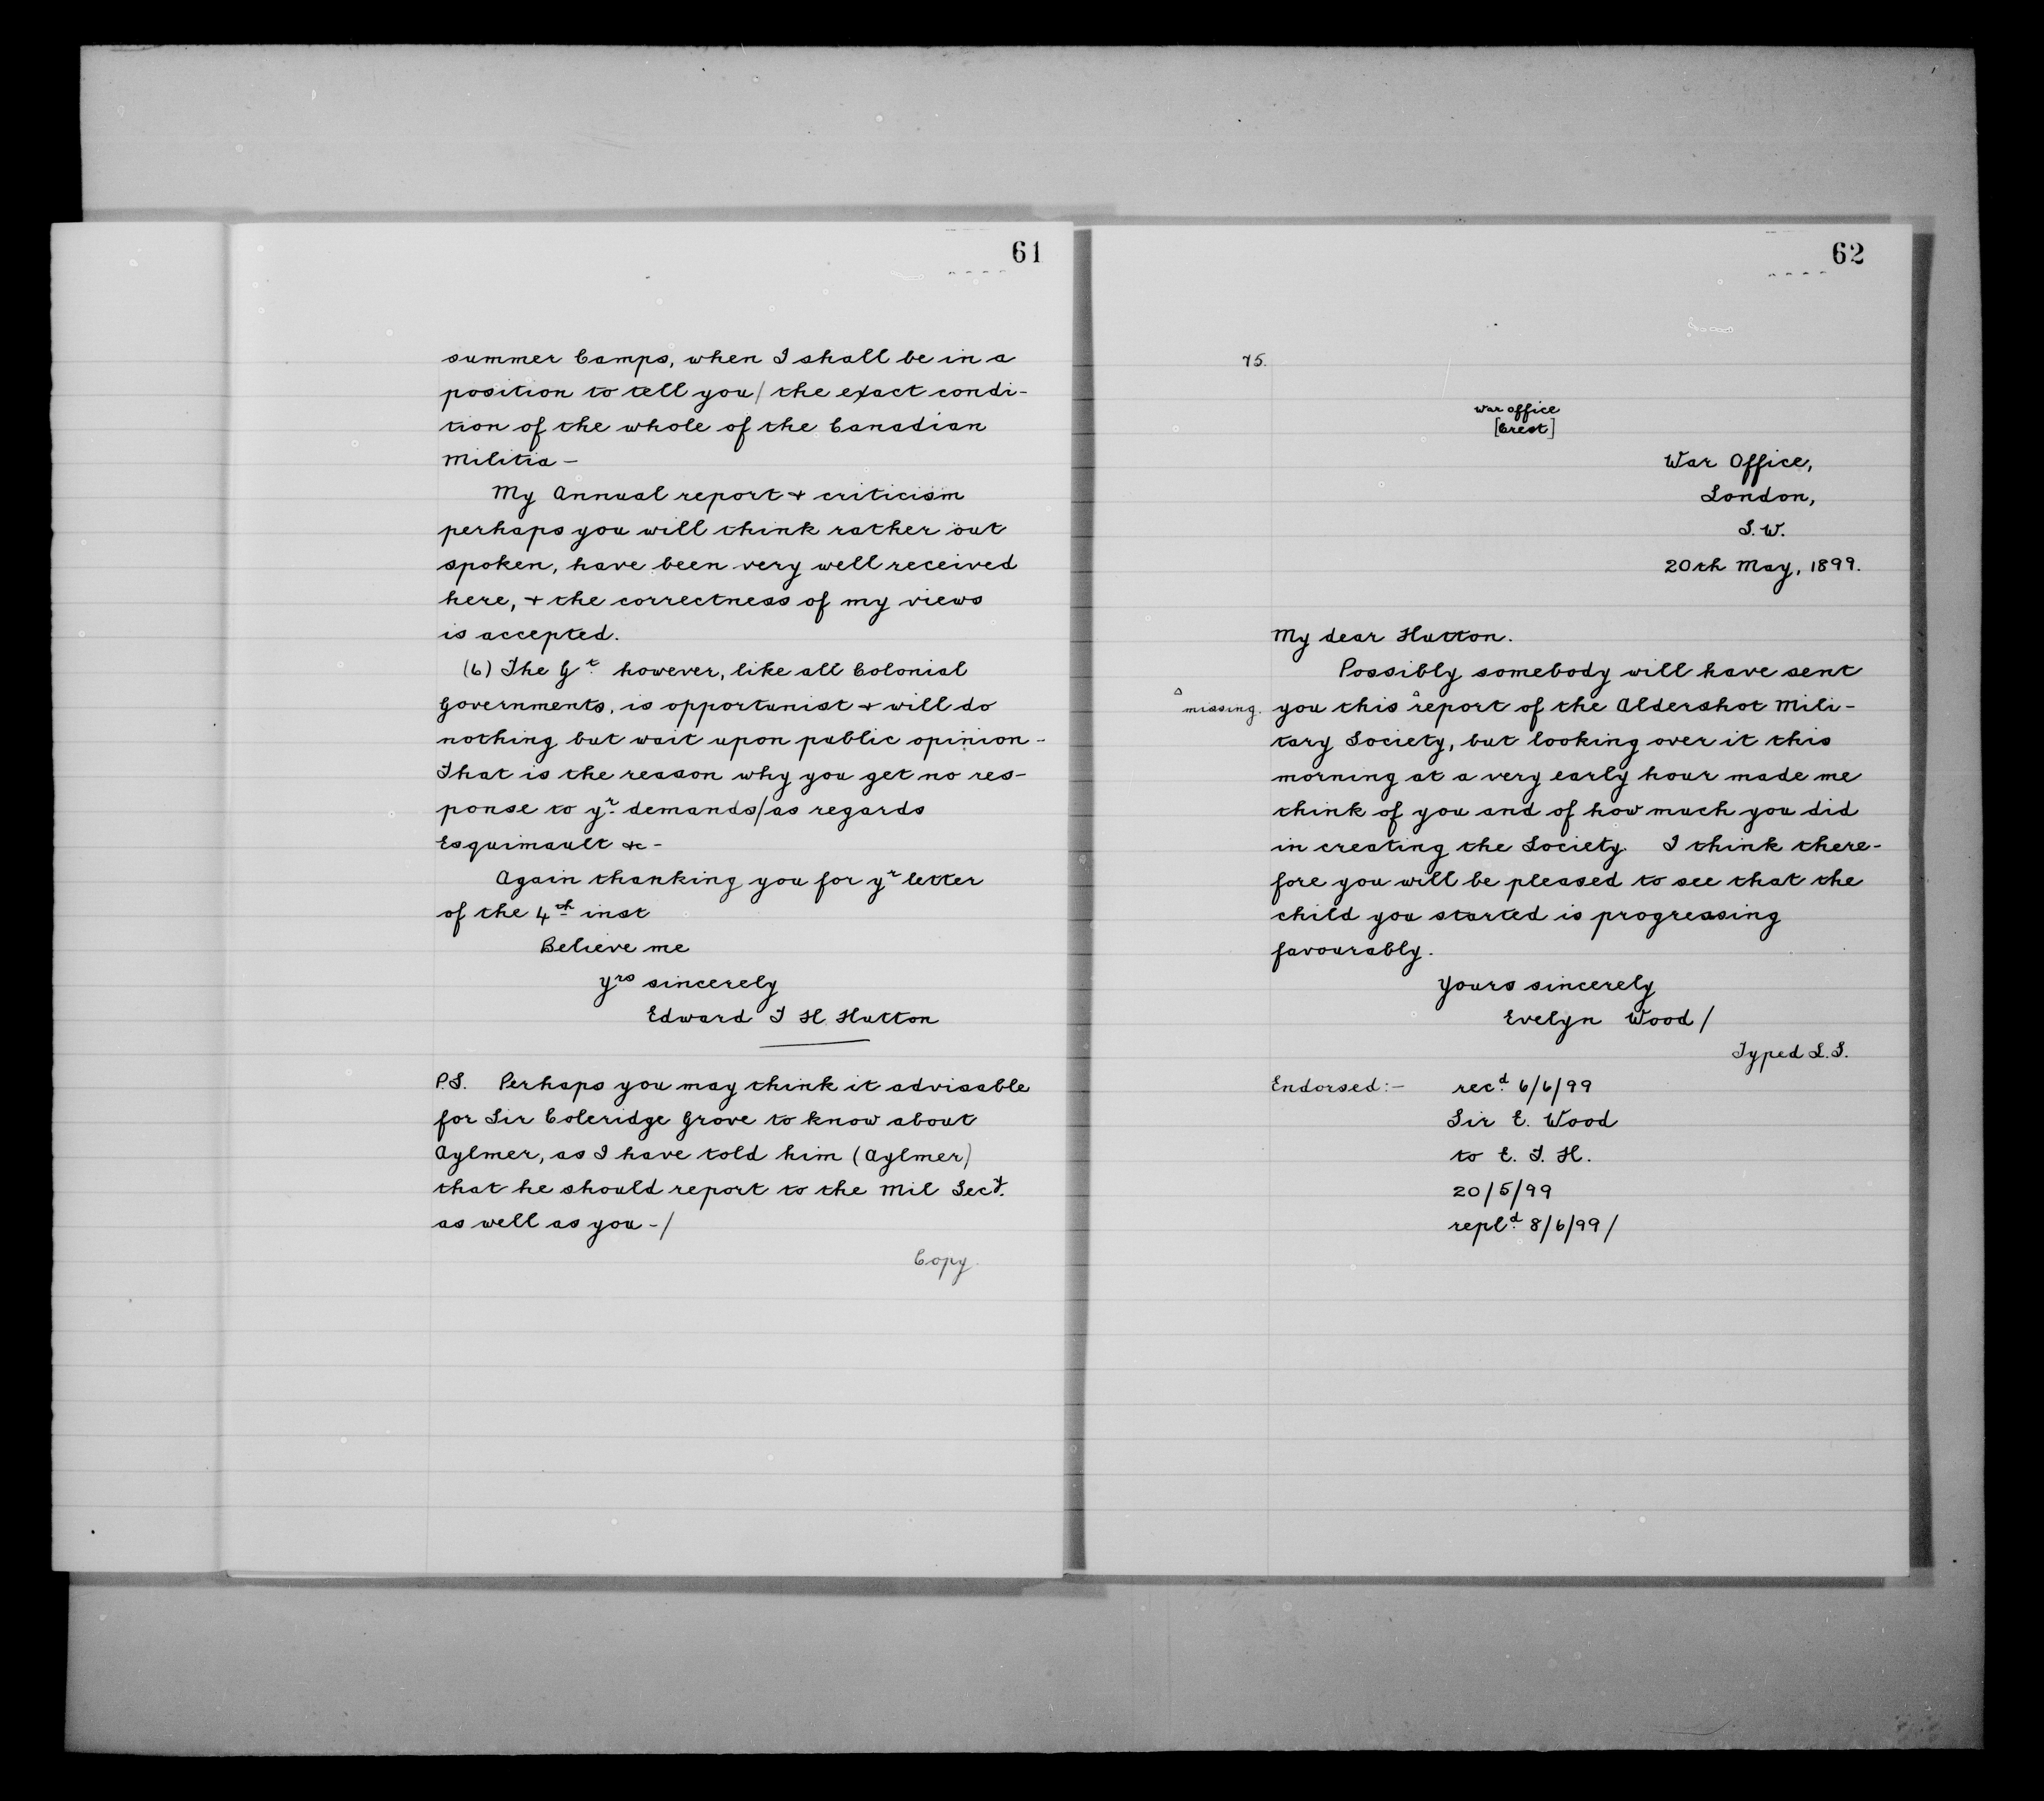 61
summer Camps, when I shall be in a
position to tell you/ the exact condi-
tion of the whole of the Canadian
Militia —
My Annual report + criticism
perhaps you will think rather out
spoken, have been very well received
here, + the correctness of my views
is accepted.
(6) The Gt. however, like all Colonial
Governments, is opportunist + will do
nothing but wait upon public opinion -
That is the reason why you get no res-
ponse to yr. demands/as regards
Esquimault &c -
Again thanking you for yr letter
of the 4th inst
Believe me
yrs sincerely
Edward T H Hutton
P.S. Perhaps you may think it advisable
for Sir Coleridge Grove to know about
Aylmer, as I have told him (Aylmer)
that he should report to the Mil Secy.
as well as you -/
Copy
62
75.
War Office
[Crest]
War Office,
London,
S.W.
20th May, 1899.
My dear Hutton.
Possibly somebody will have sent
^ missing. you this ^report of the Aldershot Mili-
tary Society, but looking over it this
morning at a very early hour made me
think of you and of how much you did
in creating the Society. I think there-
fore you will be pleased to see that the
child you started is progressing
favourably.
Yours sincerely
Evelyn Wood/
Typed L.S.
Endorsed:— recd. 6/6/99
Sir E. Wood
to E. T. H.
20/5/99
repld. 8/6/99/